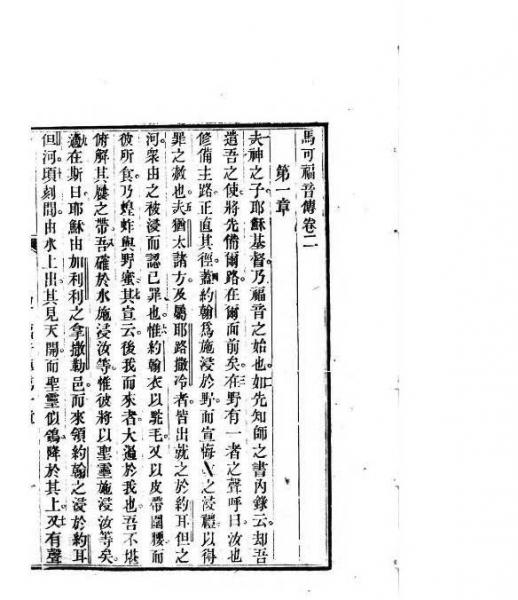 馬可福音傳卷二
第一章
夫神之子耶穌基督乃福音之始也。如先知師之書內錄云却吾
遣吾之使將先備爾路在爾面前矣。在野有一者之聲呼曰汝也
修備主路正直其徑。蓋約翰爲施浸於野而宣悔之浸禮以得
罪之赦也。夫猶太諸方及屬耶路撒冷者皆出就之於約耳但之
河衆由之被浸而認己罪也。惟約翰衣以駝毛又以皮帶圍腰而
彼所食乃蝗蚱與野蜜。其宣云後我而來者大過於我也。吾不堪
俯解其屨之帶。吾確於水施浸汝等。惟彼將以聖靈施浸汝等矣。
適在斯日耶穌由加利利之拿撒勒邑而來領約翰之浸於約耳
但河。頃刻間由水上出其見天開而聖靈似鴿降於其上。又有聲